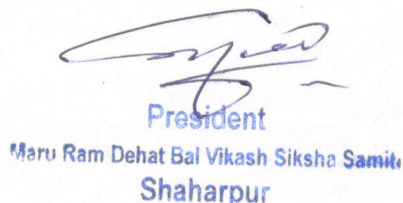 President
Maru Ram Dehat Bal Vikash Siksha Samiti
Shaharpur